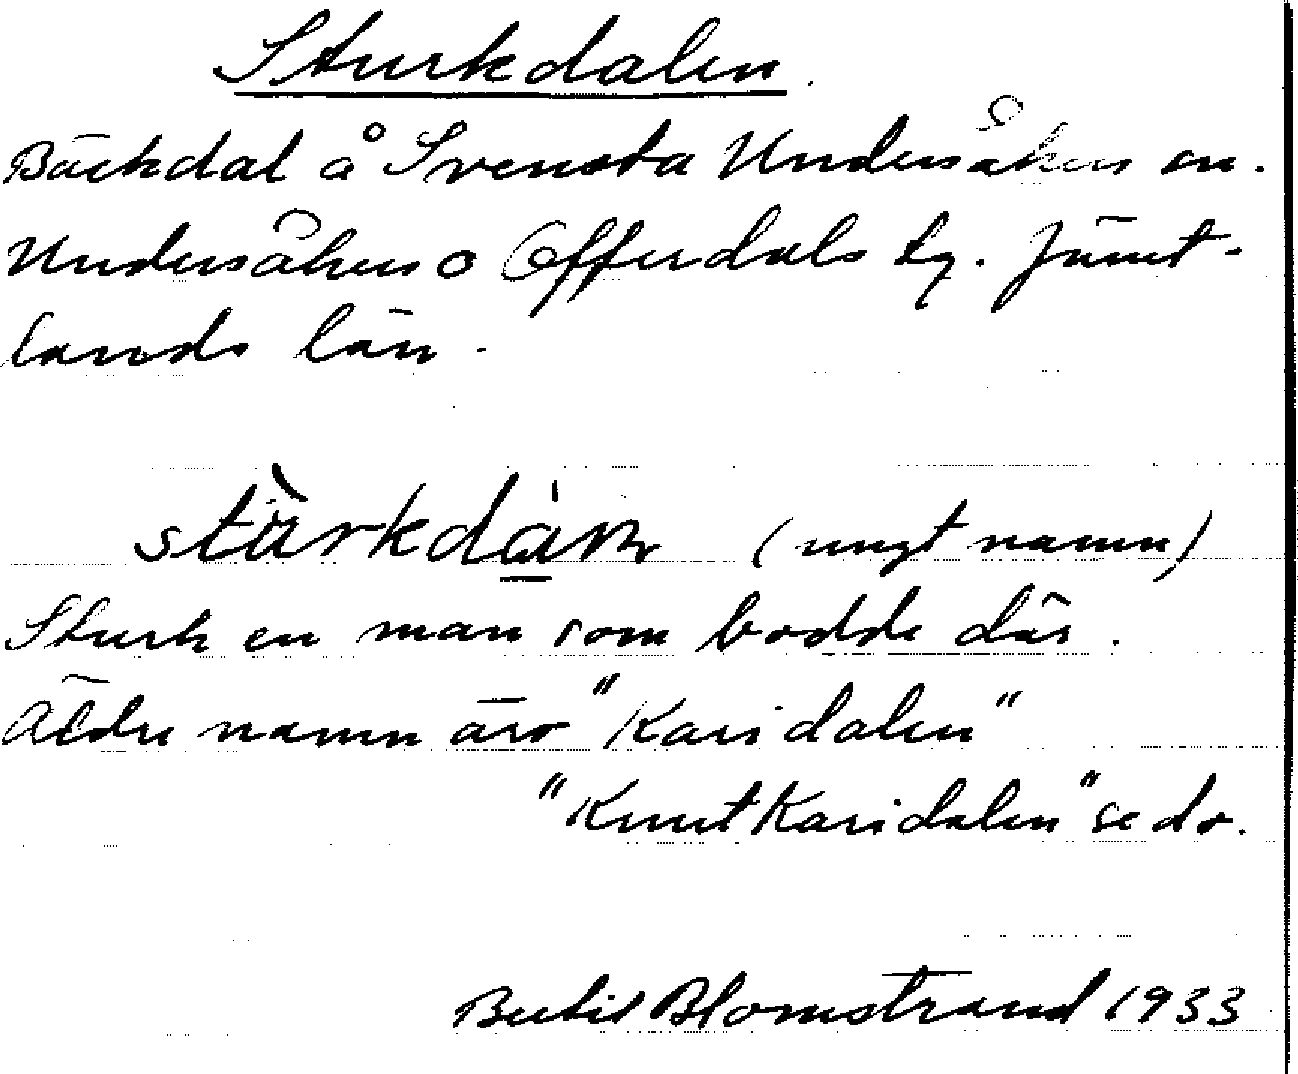 Sturkdalen.
Bäckdal å Svensta Undersåkers sn.
Undersåkers o Offerdals tg. Jämt-
lands län.
(ungt namn)
Sturk en man som bodde där.
Äldre namn äro "Karidalen"
"KnutKaridalen" se do.
Bertil Blomstrand 1933